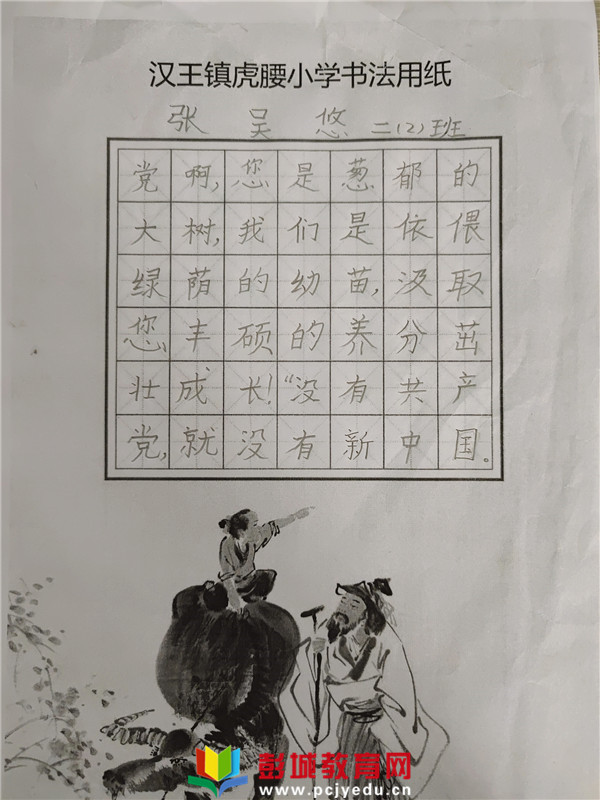 汉王镇虎腰小学书法用纸
张吴悠 二(2)班
党啊,您是葱郁的
大树,我们是依偎
绿荫的幼苗,汲取
您丰硕的养分茁
壮成长!“没有共产
党,就没有新中国。
彭城教育网
www.pcjyedu.cn